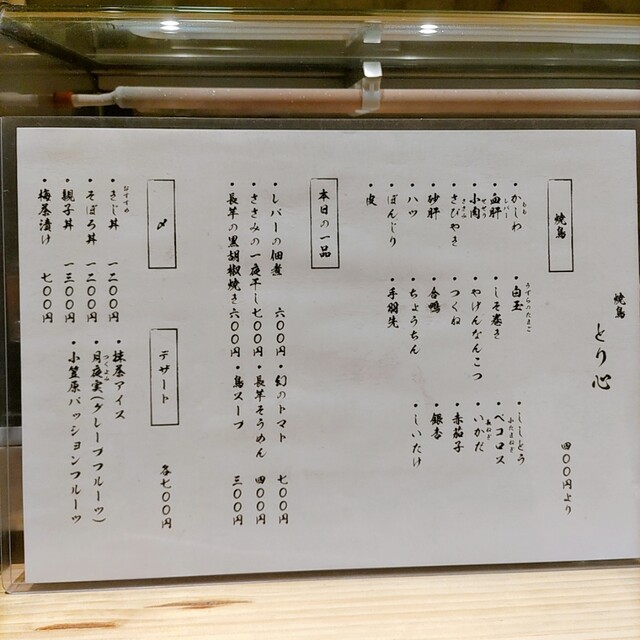 焼鳥 とり心
焼鳥
四〇〇円より
・かしわ
もも
・血肝
レバー
・小肉
せせり
・さびやき
ささみ
・砂肝
・ハツ
・ぼんじり
・皮
・白玉
うずらのたまご
・しそ巻き
・やげんなんこつ
・つくね
・合鴨
・ちょうちん
・手羽先
・ししとう
・ペコロス
ふたまねぎ
・いかだ
長ねぎ
・赤茄子
・銀杏
・しいたけ
本日の一品
・レバーの佃煮 六〇〇円
・ささみの一夜干し 七〇〇円
・長芋の黒胡椒焼き 六〇〇円
・幻のトマト 七〇〇円
・長芋そうめん 四〇〇円
・鳥スープ 三〇〇円
〆
おすすめ
・きじ丼 一二〇〇円
・そぼろ丼 一二〇〇円
・親子丼 一三〇〇円
・梅茶漬け 七〇〇円
デザート
各七〇〇円
・抹茶アイス
・月夜実(グレープフルーツ)
つくよみ
・小笠原パッションフルーツ